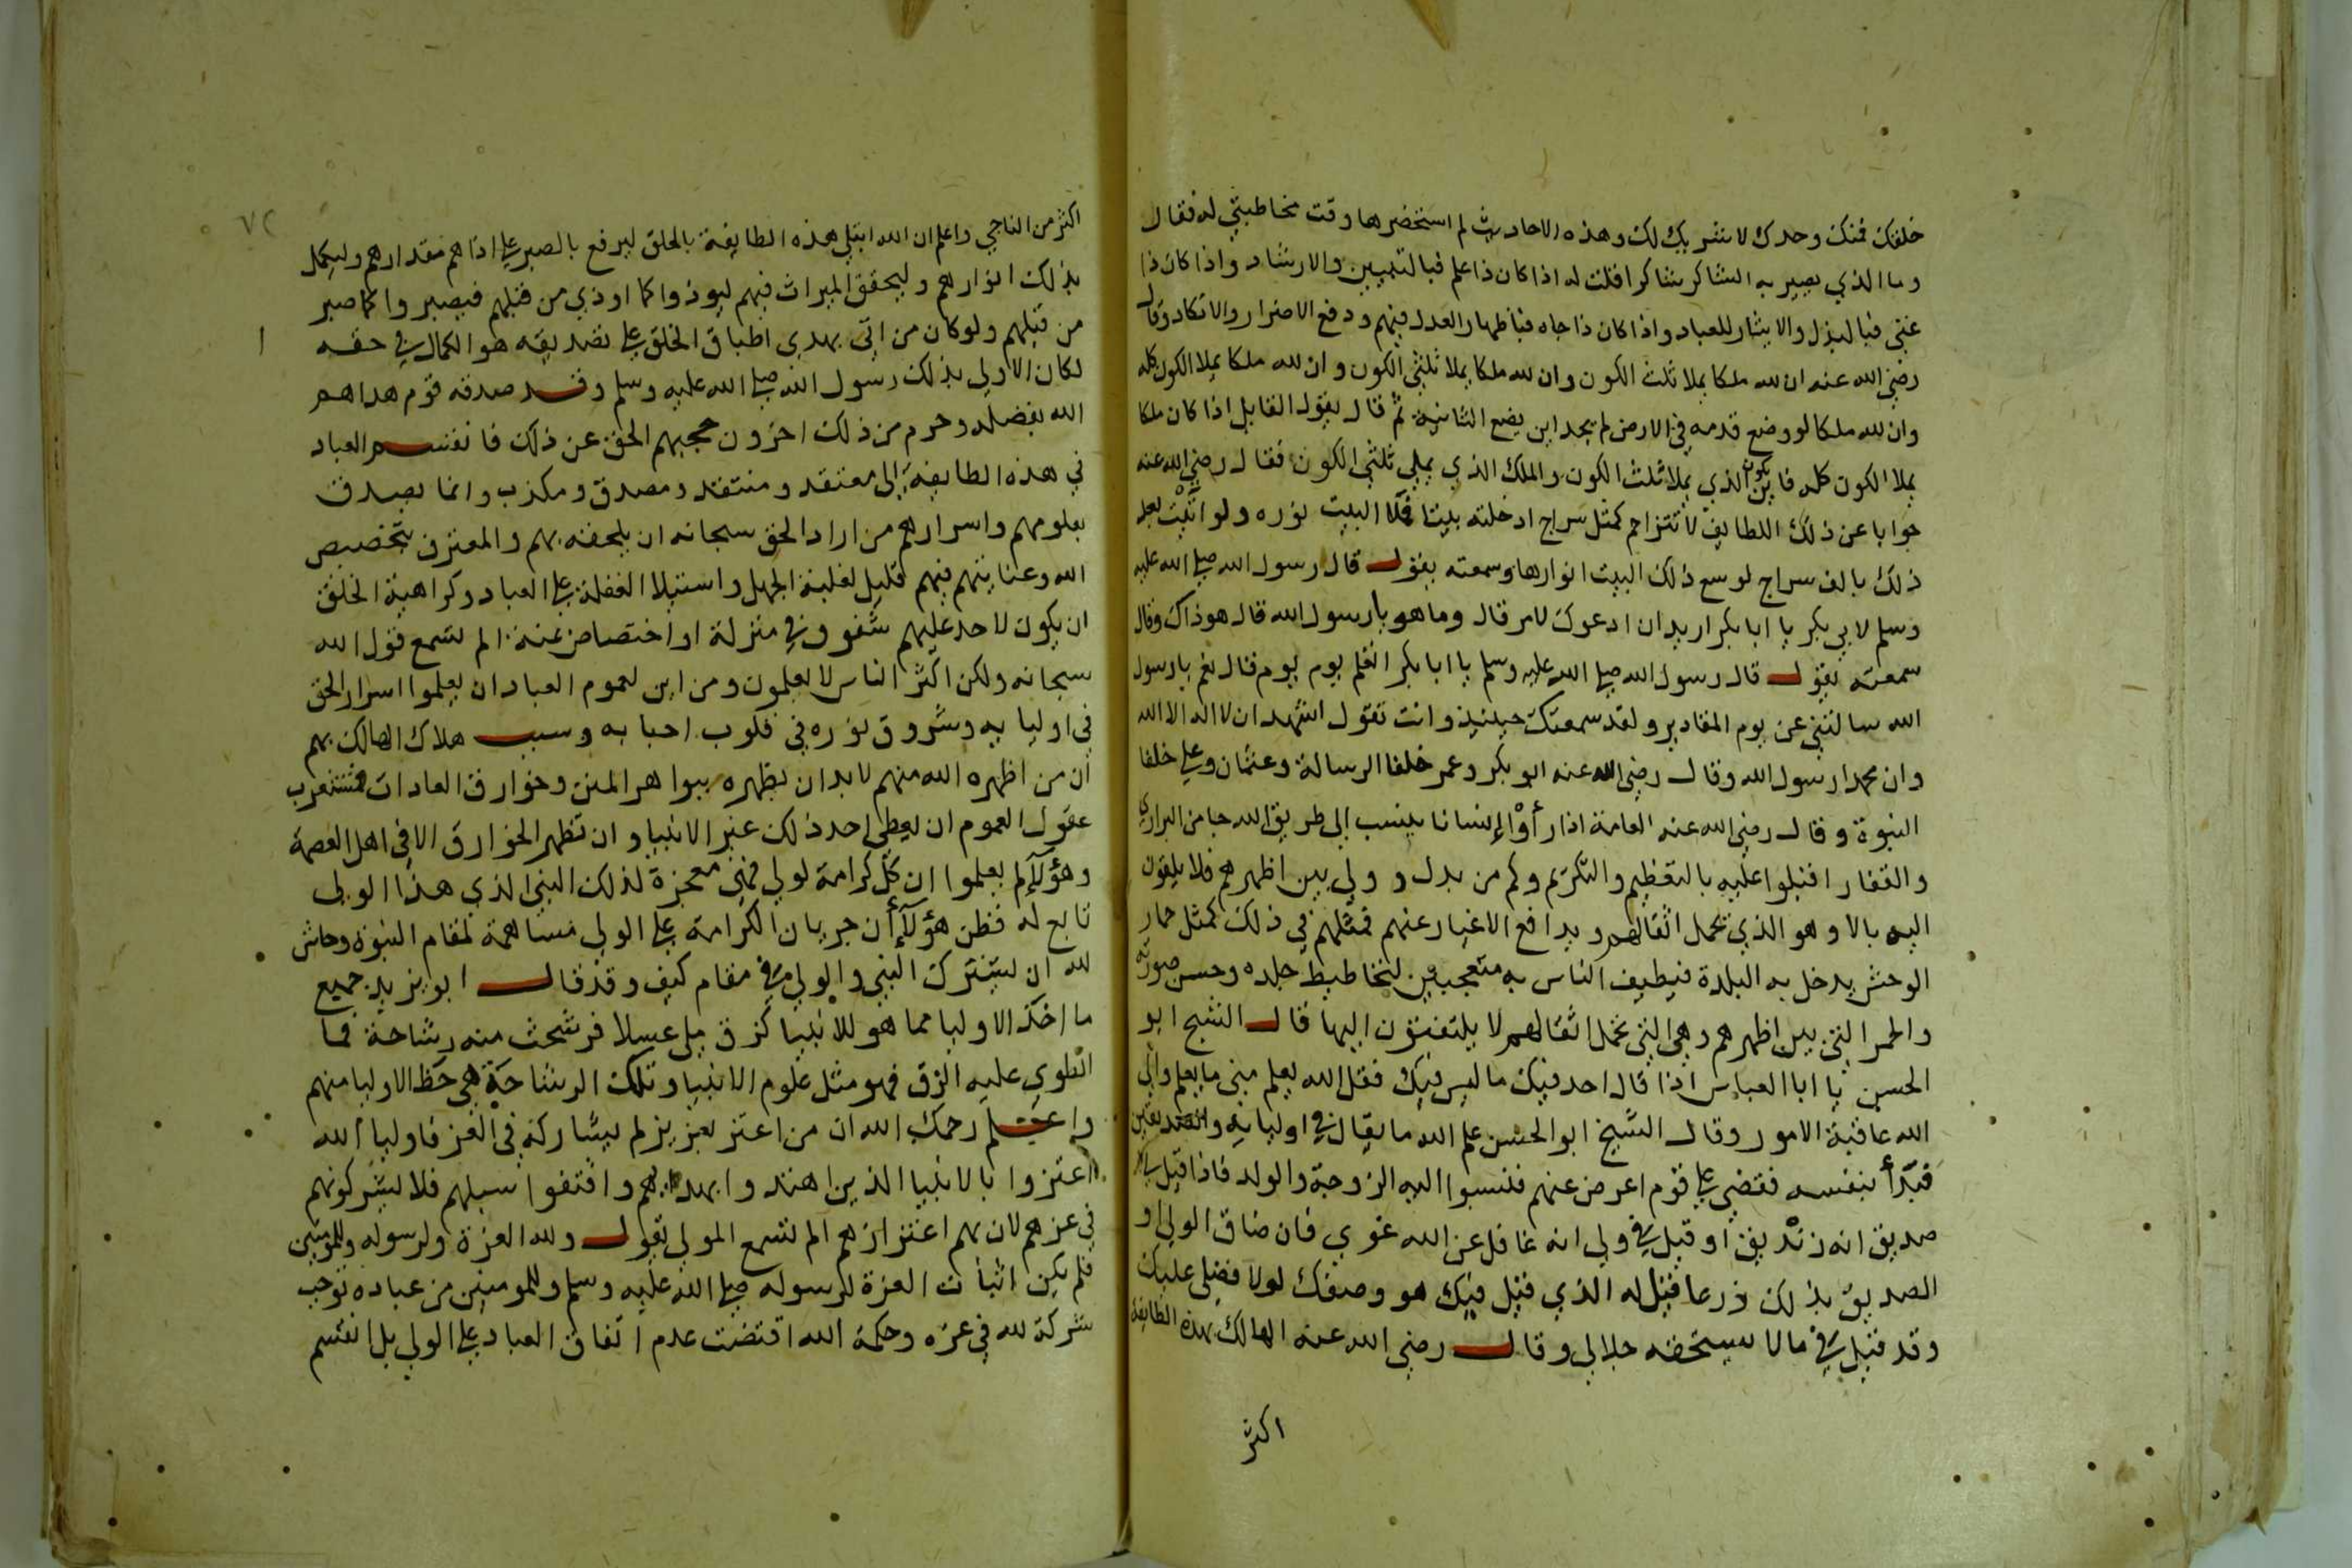 خلقك فمنك وحدك لا شريك لك وهذه الاحاديث لم استحضرها وقت مخاطبتي له فقال
وما الذي يصير به الشاكر شاكرا فقلت له اذا كان ذا علم فبالتبيين والارشاد واذا كان ذا
غني فبالبذل والايثار للعباد واذا كان ذا جاه فباظهار العدل فيهم ودفع الاضرار والانكاد وقال
رضي الله عنه ان لله ملكا يملا ثلث الكون وان لله ملكا يملا ثلثي الكون وان لله ملكا يملا الكون كله
وان لله ملكا لو وضع قدمه في الارض لم يجد اين يضع الثانية ثم قال يقول القايل اذا كان ملكا
يملا الكون كله فاين يكون الذي يملا ثلث الكون والملك الذي يملي ثلثي الكون فقال رضي الله عنه
جوابا عن ذلك اللطايف لا تتزاحم كمثل سراج ادخلته بيتا فملا البيت نوره ولو اتيت بعد
ذلك بالف سراج لوسع ذلك البيت انوارها وسمعته يقول قال رسول الله صلى الله عليه
وسلم لابي بكر يا ابا بكر اريد ان ادعوك لامر قال وما هو يا رسول الله قال هو ذاك وقال
سمعته يقول قال رسول الله صلى الله عليه وسلم يا ابا بكر اتعلم يوم يوم قال نعم يا رسول
الله سالتني عن يوم المقادير ولقد سمعتك حينيذ وانت تقول اشهد ان لا اله الا الله
وان محمدا رسول الله وقال رضي الله عنه ابو بكر وعمر خلفا الرسالة وعثمان وعلي خلفا
النبوة وقال رضي الله عنه العامة اذا رأوا إنسانا ينسب الى طريق الله جا من البراري
والقفار اقبلوا عليه بالتعظيم والتكريم وكم من بدل وولي بين اظهرهم فلا يلقون
اليه بالا وهو الذي تحمل اثقالهم ويدافع الاغيار عنهم فمثلهم في ذلك كمثل حمار
الوحش يدخل به البلدة فيطيف الناس به متعجبين لتخاطيط جلده وحسن صورته
والحمر التي بين اظهرهم وهي التي تحمل اثقالهم لا يلتفتون اليها قال الشيخ ابو
الحسن يا ابا العباس اذا قال احد فيك ما ليس فيك فقل الله يعلم مني ما يعلم والى
الله عاقبة الامور وقال الشيخ ابو الحسن علم الله ما يقال في اوليايه
فبدأ بنفسه فقضي على قوم اعرض عنهم فنسبوا اليه الزوجة والولد فاذا قيل في
صديق انه زنديق او قيل في ولي انه غافل عن الله غوي فان ضاق الولي او
الصديق بذلك ذرعا قيل له الذي قيل فيك هو وصفك لولا فضلي عليك
وقد قيل في ما لا يستحقه جلالي وقال رضي الله عنه الهالك بهذه الطايفة
اكثر
٧٢
اكثر من الناجي واعلم ان الله ابتلى هذه الطايفة بالخلق ليرفع بالصبر على اذاهم مقدارهم وليكمل
بذلك انوارهم وليحقق الميراث فيهم ليوذوا كما اوذي من قبلهم فيصبروا كما صبر
من قبلهم ولو كان من اتى بهدي اطباق الخلق على تصديقه هو الكمال في حقه
لكان الاولى بذلك رسول الله صلى الله عليه وسلم وقد صدقه قوم هداهم
الله بفضله وحرم من ذلك اخرون حجبهم الحق عن ذلك فانقسم العباد
في هذه الطايفة إلى معتقد ومنتقد ومصدق ومكذب وانما يصدق
بعلومهم واسرارهم من اراد الحق سبحانه ان يلحقه بهم والمعترف بتخصيص
الله وعنايتهم فيهم قليل لغلبة الجهل واستيلا الغفلة على العباد وكراهية الخلق
ان يكون لاحد عليهم شفوف في منزلة او اختصاص عنه الم تسمع قول الله
سبحانه ولكن اكثر الناس لا يعلمون ومن اين لعموم العباد ان يعلموا اسرار الحق
في اوليايه وشروق نوره في قلوب احبابه وسبب هلاك الهالك بهم
ان من اظهره الله منهم لا بد ان يظهره ببواهر المنن وخوارق العادات فتستغرب
عقول العموم ان يعطي احد ذلك غير الانبيا وان تظهر الخوارق الا في اهل العصمة
وهؤلآ لم يعلموا ان كل كرامة لولي فهي معجزة لذلك النبي الذي هذا الولي
تابع له فظن هؤلآ أن جريان الكرامة على الولي مساهمة لمقام النبوة وحاش
لله ان يشترك النبي والولي في مقام كيف وقد قال ابو يزيد جميع
ما اخذ الاوليا مما هو للانبيا كزق ملي عسلا فرشحت منه رشاحة فما
انطوى عليه الزق فهو مثل علوم الانبيا وتلك الرشاحة هي حظ الاوليا منهم
واعلم رحمك الله ان من اعتز بعزيز لم يشاركه في العز فاوليا الله
اعتزوا بالانبيا الذين اهتدوا بهداهم واقتفوا سبلهم فلا يشركونهم
في عزهم لان بهم اعتزازهم الم تسمع المولى يقول ولله العزة ولرسوله وللمومنين
فلم يكن اثبات العزة لرسوله صلى الله عليه وسلم وللمومنين من عباده توجب
شركة لله في عزه وحكمة الله اقتضت عدم اتفاق العباد على الولي بل انقسم